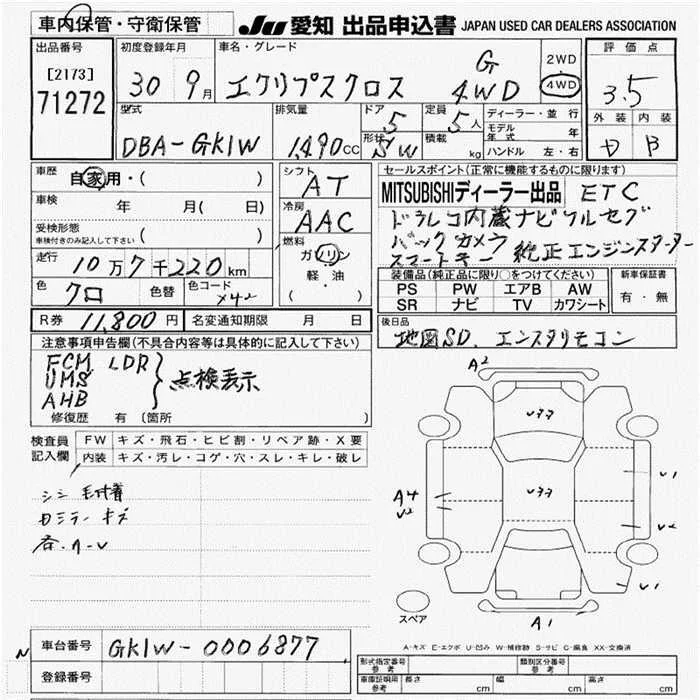 車内保管・守衛保管
JU 愛知 出品申込書 JAPAN USED CAR DEALERS ASSOCIATION
出品番号
[2173]
71272
初度登録年月
30 9月
車名・グレード
エクリプスクロス G 4WD
2WD
4WD
評価点
3.5
外装 内装
B
型式
DBA-GK1W
排気量
1490CC
ドア
5
形状
SW
定員
5人
積載
kg
ディーラー・並行
モデル年式 年
ハンドル 左・右
車歴 自家用・( )
車検 年 月( 日)
受検形態 ( )
車検付きのみ記入して下さい
走行 10万7千220km
色 クロ 色替 色コード X42
シフト AT
冷房 AAC
燃料
ガソリン
軽・油
( )
R券 11,800円 名変通知期限 月 日
セールスポイント(正常に機能するものに限ります)
MITSUBISHIディーラー出品 ETC
ドラレコ内蔵ナビフルセグ
バックカメラ
スマートキー 純正エンジンスターター
装備品(純正品に限り○をつけてください)
PS PW エアB AW
SR ナビ TV カワシート
新車保証書
有・無
後日品
地図SD. エンスタリモコン
注意事項申告欄(不具合内容等は具体的に記入して下さい)
FCM LDR
UMS
AHB
点検表示
修復歴 有 〔箇所 〕
検査員記入欄
FW キズ・飛石・ヒビ割・リペア跡・X要
内装 キズ・汚レ・コゲ・穴・スレ・キレ・破レ
シミ 毛付着
キズ
A2
A4
U2
A1
スペア
A-キズ E-エクボ U-凹み W-補修跡 S-サビ C-腐食 XX-交換済
車台番号 GK1W-0006877
登録番号
形式指定番号 参考
類別区分番号 参考
車庫証明用 参考
長さ cm 幅 cm 高さ cm